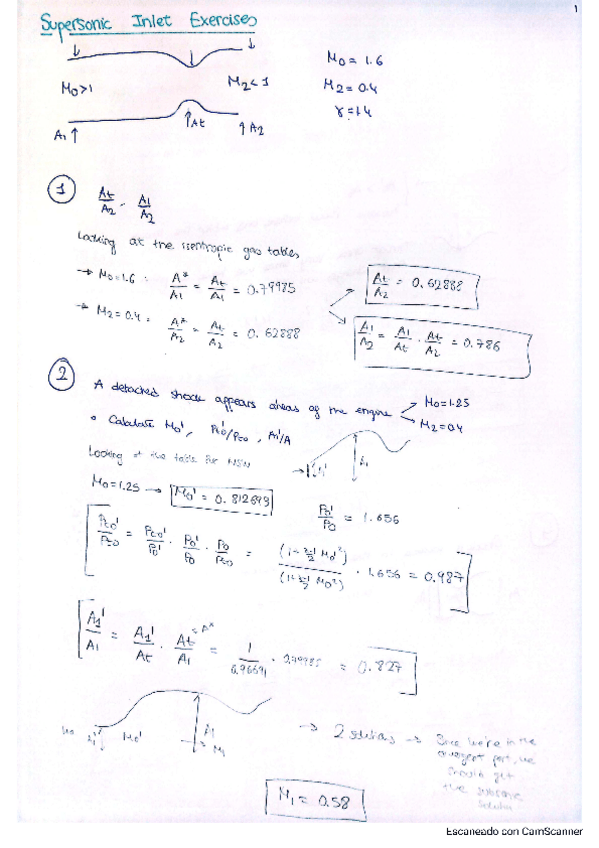 1
Supersonic Inlet Exercises
M0 = 1.6
M0 > 1
M2 < 1
M2 = 0.4
γ = 1.4
A1 ↑
↑ At
↑ A2
① At/A2 , A1/A2
Looking at the isentropic gas tables
→ M0 = 1.6 : A*/A1 = At/A1 = 0.79985
At/A2 = 0.62888
→ M2 = 0.4 : A*/A2 = At/A2 = 0.62888
A1/A2 = A1/At · At/A2 = 0.786
② A detached shock appears ahead of the engine
M0 = 1.25
M2 = 0.4
• Calculate M0', Pt0'/Pt0, A1'/A
Looking at the table for NSW
M0 = 1.25 → M0' = 0.812693
P0'/P0 = 1.656
Pt0'/Pt0 = Pt0'/P0' · P0'/P0 · P0/Pt0 = (1+γ-1/2 M0'²)/(1+γ-1/2 M0²) · 1.656 = 0.987
A1'/A1 = A1'/At · At/A1 = 1/0.96691 · 0.79985 = 0.827
= A*
M0'
M1
→ 2 solutions → Since we're in the
divergent part, we
should get
the subsonic
solution
M1 = 0.58
Escaneado con CamScanner